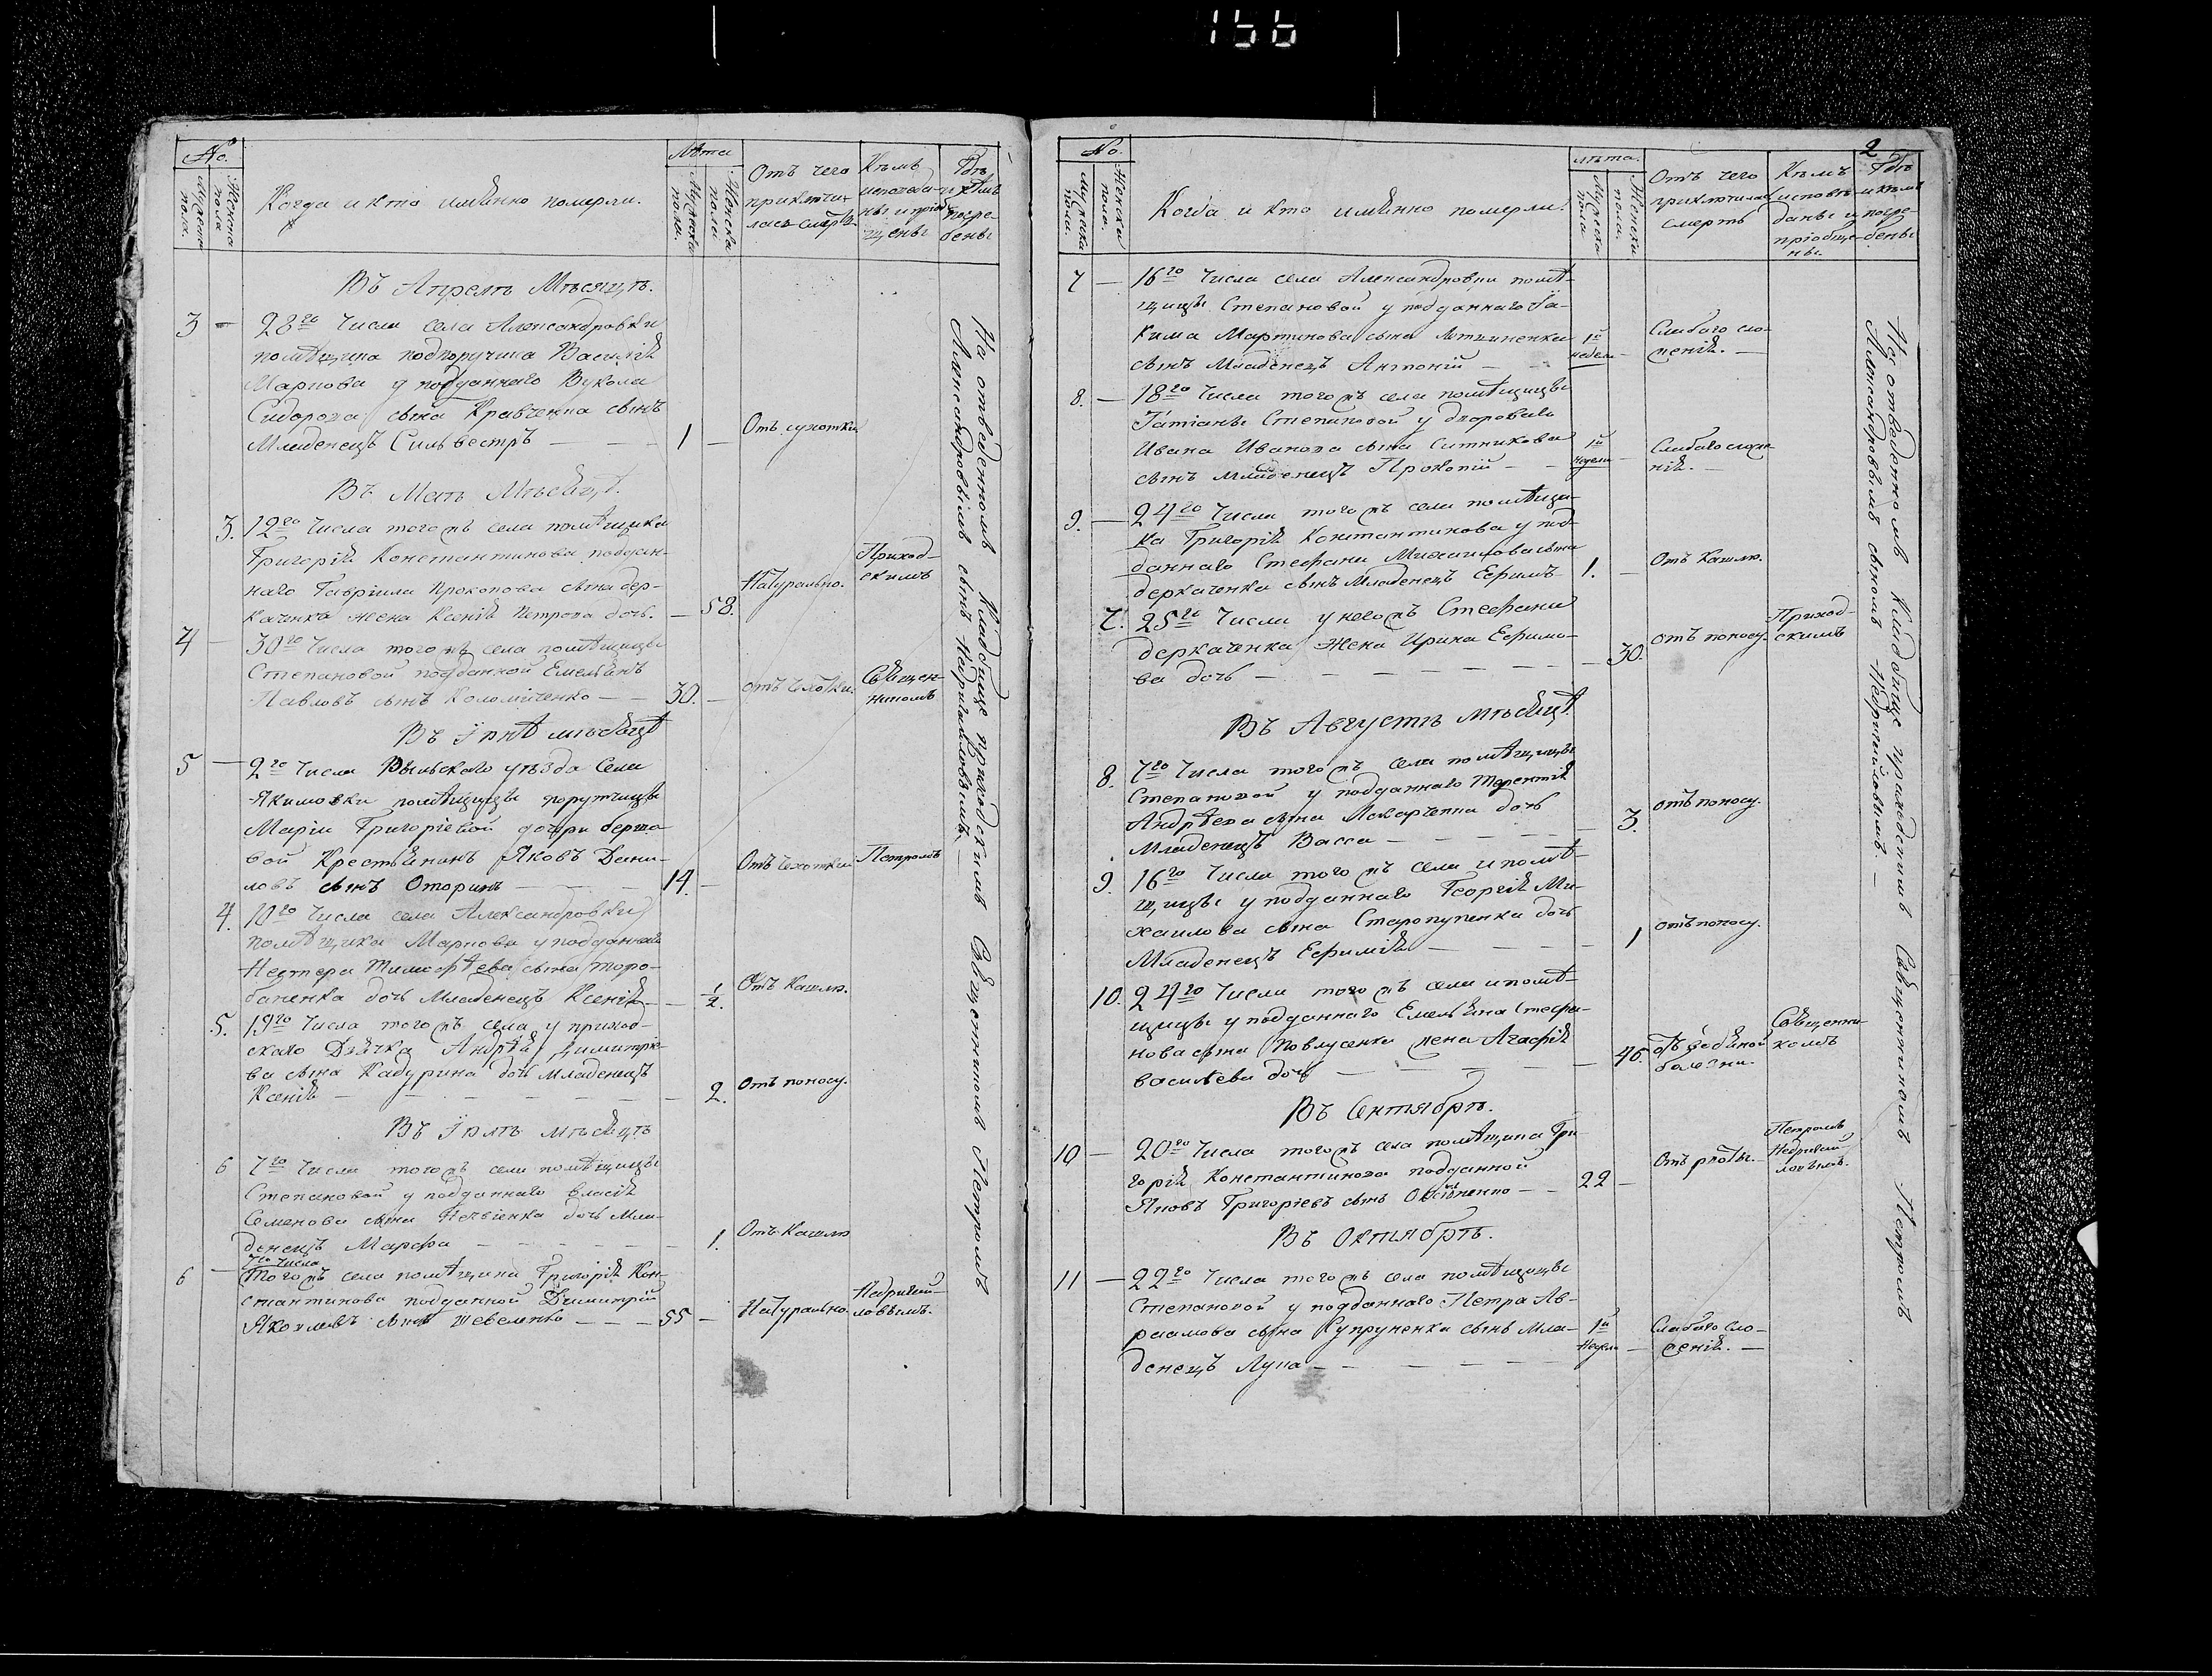 166
No.
Мужеска пола.
Женска пола
Когда и кто имянно померли.
Лѣта
Мужеска пола.
Женска пола
Отъ чего
приключи-
лась смерть
Кѣмъ
исповѣда-
ны и приоб-
щены
Гдѣ
и кѣмъ
погре-
бены
Въ Апрелѣ Мѣсяцѣ.
3 — 28го Числа села Александровки
помѣщика подпоручика Василія
Маркова у подданнаго Вукола
Сидорова сына Кравченка сынъ
Младенецъ Сильвестръ — 1 — Отъ сухотки
Въ Маѣ Мѣсяцѣ.
3. 12го Числа того жъ села помѣщика
Григорія Константинова поддан-
наго Гавріила Прокопова сына дер-
каченка жена Ксенія Петрова дочь. — 58. Натурально.
Приход-
скимъ
4 — 30го Числа того жъ села помѣщицы
Степановой подданной Емельянъ
Павловъ сынъ Коломійченко — 30. — отъ чахотки.
Священ-
никомъ
Въ Іюнѣ мѣсяцѣ
5 — 2го Числа Рыльскаго уѣзда Села
Якимовки помѣщицы порутчицы
Маріи Григоріевой дочери
вой Крестьянинъ Яковъ Дани-
ловъ сынъ — 14. — Отъ Чахотки Петромъ
4. 10го Числа села Александровки
помѣщика Маркова у подданнаго
Нестера Тимофѣева сына торо-
баченка дочь Младенецъ Ксенія — 1/2. Отъ Кашлю.
5. 19го Числа того жъ села у приход-
скаго Дьячка Андрѣя Димитріе-
ва сына Кадурина дочь Младенецъ
Ксенія — 2. Отъ поносу.
Въ Іюлѣ мѣсяцѣ
6 7го Числа того жъ села помѣщицы
Степановой у подданнаго власія
Семенова сына дочь Мла-
денецъ Марфа — 1. Отъ Кашлю
7го Числа
6 — Того жъ села помѣщика Григорія Кон-
стантинова подданной Димитрій
Яковлевъ сынъ Шевелько — 55 — Натурально.
Недригай-
ловымъ.
На отведенномъ Кладбище приходскимъ Священникомъ Петромъ
Александровымъ сынъ Недригайловымъ. —
2
No.
Мужеска пола.
Женска пола.
Когда и кто имянно померли.
лѣта.
Мужеска пола
Женска пола.
Отъ чего
приключилась
смерть
Кѣмъ
исповѣ-
даны и
пріобще-
ны.
Гдѣ
и кѣмъ
погре-
бены
7 — 16го Числа села Александровки помѣ-
щицы Степановой у подданнаго Іа-
кима Мартинова сына сынъ Младенецъ Антоній — 1й недели — Слабаго сло-
женія. —
8. — 18го Числа того жъ села помѣщицы
Татіаны Степановой у двороваго
Ивана Иванова сына Ситникова
сынъ младенецъ Прокопій — 1й недели — Слабаго сложе-
нія. —
9. — 24го Числа того жъ села помѣщи-
ка Григорія Константинова у под-
даннаго Стефана Михаилова сына
деркаченка сынъ Младенецъ Ефимъ 1. — Отъ Кашлю.
7. 25го Числа у него жъ Стефана
деркаченка Жена Ирина Ефимо-
ва дочь — 30. отъ поносу.
Приход-
скимъ
Въ Августѣ мѣсяцѣ.
8. 7го Числа того жъ села помѣщицы
Степановой у подданнаго Терентія
Андрѣева сына Макарченка дочь
Младенецъ Васса — 3. отъ поносу.
9. 16го Числа того жъ села и помѣ-
щицы у подданнаго Георгія Ми-
хаилова сына Старопупенка дочь
Младенецъ Ефимія — 1 отъ поносу.
10. 24го Числа того жъ села и помѣ-
щицы у подданнаго Емельяна Стефа-
нова сына Павлусенка жена Агафія
Василева дочь — 46.
болезни.
Священни-
комъ
Въ Сентябрѣ.
10 — 20го Числа того жъ села помѣщика Гри-
горія Константинова подданной
Яковъ Григоріевъ сынъ — 22 — Отъ рвоты.
Петромъ
Недригай-
ловымъ.
Въ Октябрѣ.
11 — 22го Числа того жъ села помѣщицы
Степановой у подданнаго Петра Ав-
раамова сына Купруненка сынъ Мла-
денецъ Лука — 1й Недели — Слабаго сло-
женія. —
На отведенномъ Кладбище приходскимъ Священникомъ Петромъ
Александровымъ сыномъ Недригайловымъ. —